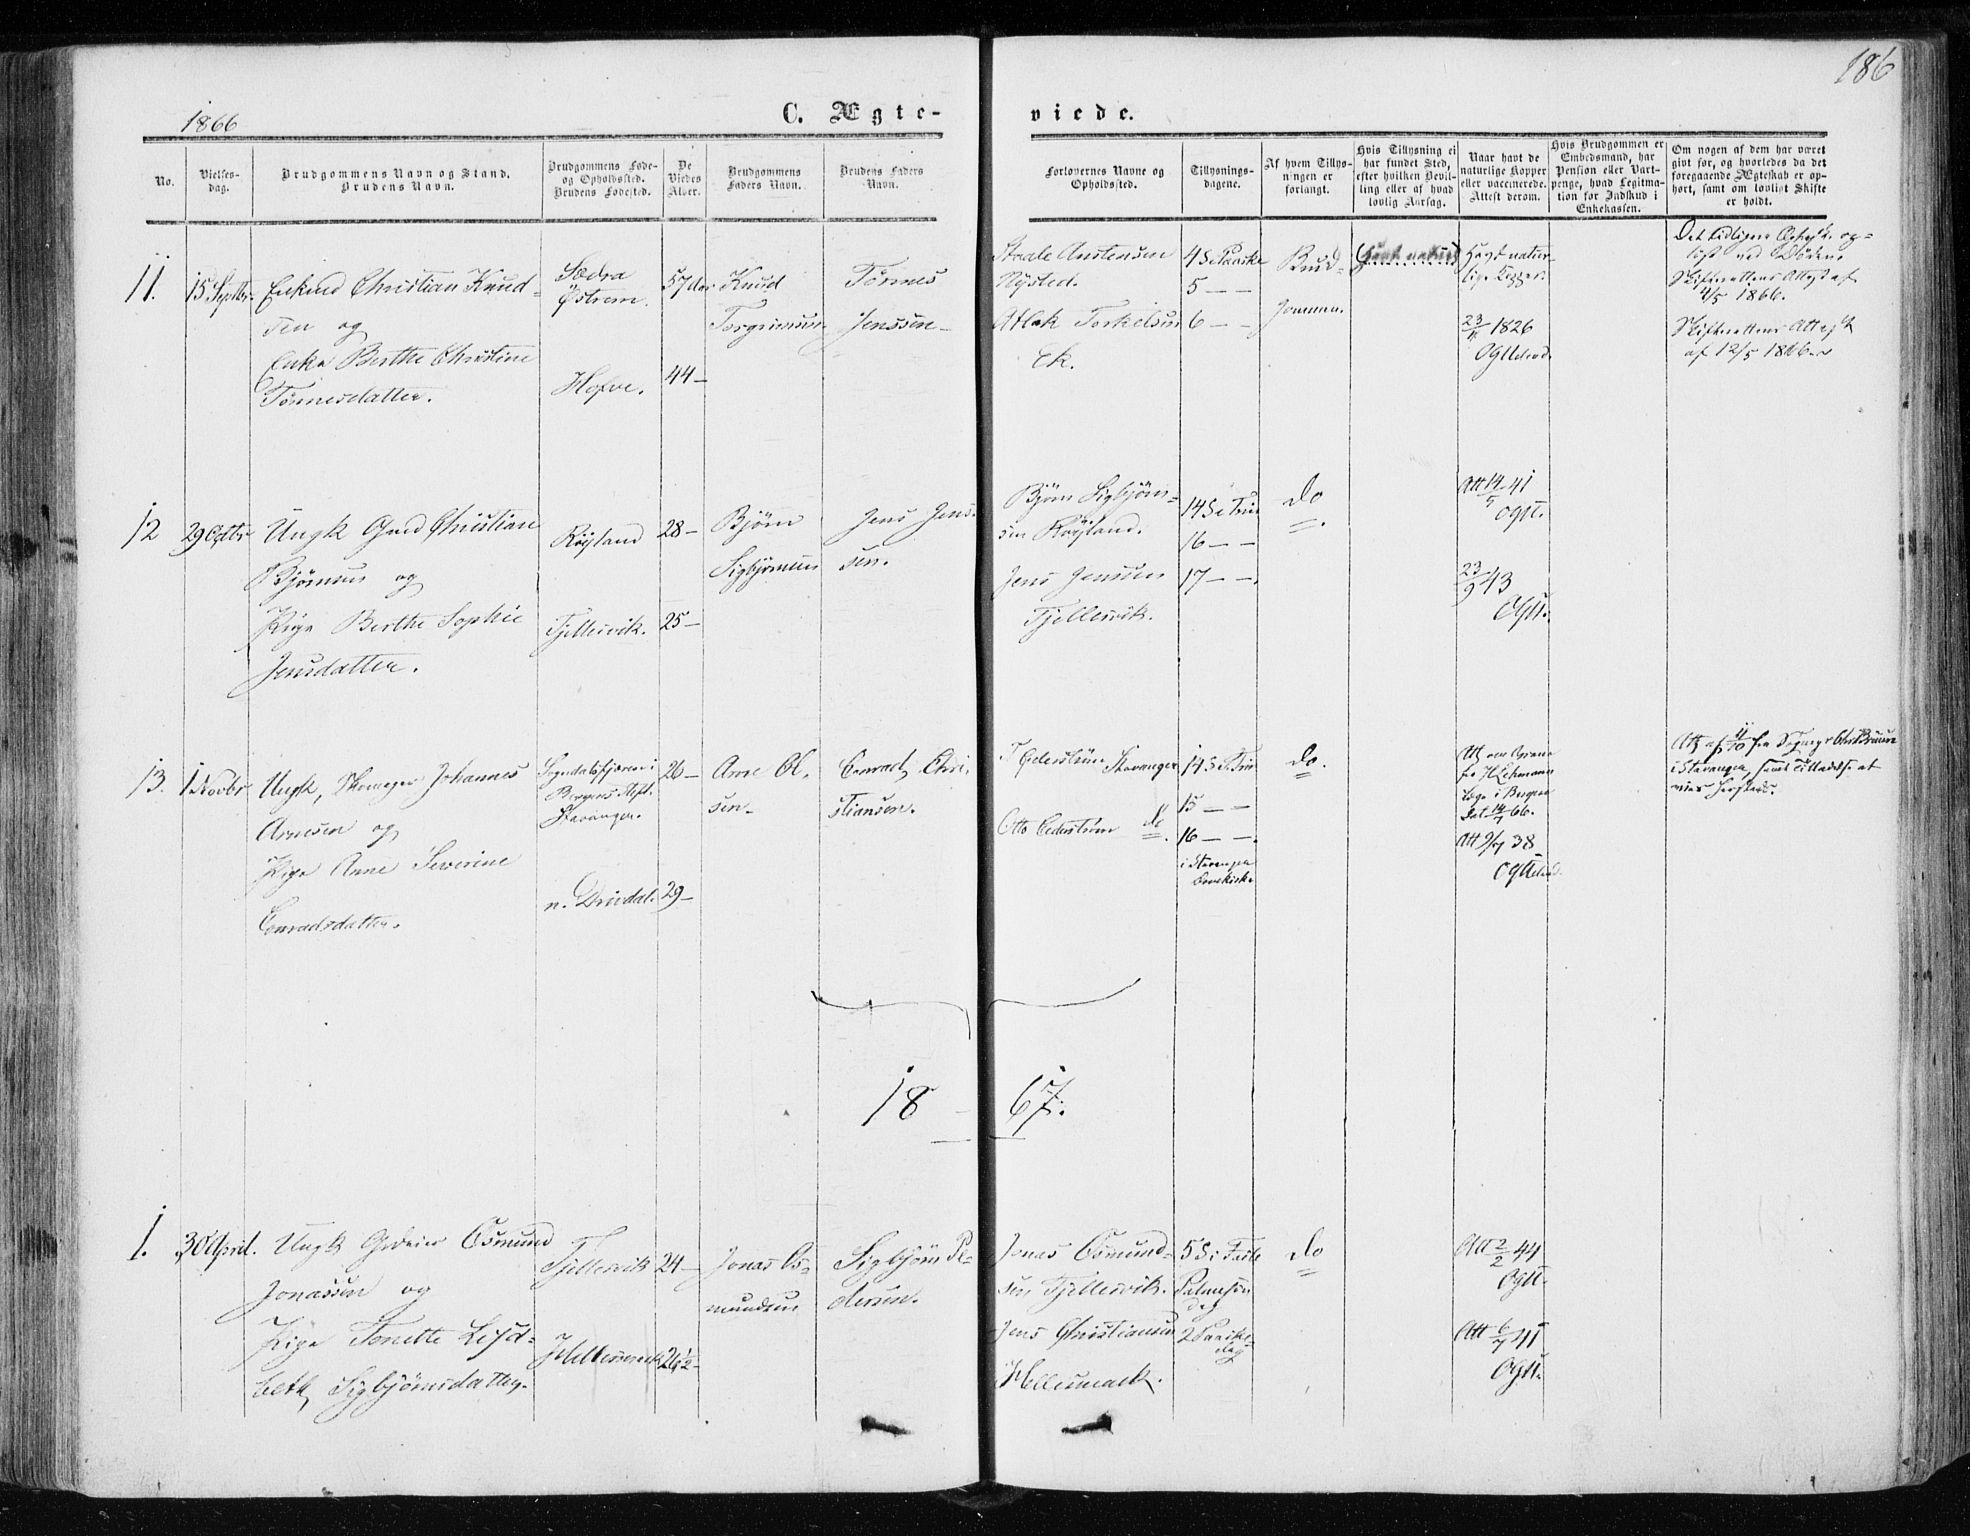 186
1866
C. Ægte-
viede.
No.
Vielses-
dag.
Brudgommens Navn og Stand.
Brudens Navn.
Brudgommens Føde-
og Opholdssted.
Brudens Fødested.
De
Viedes
Alder.
Brudgommens
Faders Navn.
Brudens Faders
Navn.
Forlovernes Navne og
Opholdssted.
Tillysnings-
dagene.
Af hvem Tillys-
ningen er
forlangt.
Hvis Tillysning ei
har fundet Sted,
efter hvilken Bevil-
ling eller af hvad
lovlig Aarsag.
Naar havt de
naturlige Kopper
eller vaccinerede.
Attest derom.
Hvis Brudgommen er
Embedsmand, har
Pension eller Vart-
penge, hvad Legitima-
tion for Indskud i
Enkekassen.
Om nogen af dem har været
givt før, og hvorledes da det
foregaaende Ægteskab er op-
hørt, samt om lovligt Skifte
er holdt.
11.
15 Septbr.
Enkmd Christian Knud-
sen og
Enke Berthe Christine
Tønnesdatter.
Sædra
Østrem.
Hofve.
57
44
Knud
Torgrimsen
Tønnes
Jenssen
Staale Anstensen
Nysted.
Atlak Torkelsen
Ek.
4 S e Paaske
5 — —
6 — —
Brud-
gommen.
Havt natur-
lige Kopper.
23/11 1826
Det tidligere Ægtesk. op-
løst ved Døden.
Skifterettens Attest af
4/5 1866.
Skifterettens Attest
af 12/5 1866.
12
29 Octbr
Ungk Gard Christian
Bjørnsen og
Pige Berthe Sophie
Jensdatter.
Røysland
Tjellesvik.
28 —
25 —
Bjørn
Sigbjørnsen
Jens Jens-
sen.
Bjørn Sigbjørn-
sen Røysland.
Jens Jenssen
Tjellesvik.
14 S e Trin
16 — —
17 — —
do
Att 14/5 41
23/9 43
13.
1 Novbr
Ungk, Skomager Johannes
Arnesen og
Pige Anne Severine
Conradsdatter.
Sogndalsfjæren i
Bergens Stift.
Stavanger.
n. Drivdal.
26 —
29 —
Arne Ol-
sen.
Conrad Chri-
stiansen.
T Cederstrøm Stavanger
Otto Cederstrøm do
14 S e Trin
15 — —
16 — —
i Stavanger
Domkirke
do.
fra H Lehmann
Læge i Bergen
dat 14/7 66.
i Stavanger, samt Tilladelse at
vies hersteds.
18 — 67.
1.
30 April.
Ungk Osmund
Jonassen og
Pige Tonette Lisd-
beth Sigbjørnsdatter.
Tjellesvik
Hellesmark
24 —
26½ —
Jonas Os-
mundsen
Sigbjørn Pe-
dersen.
Jonas Osmund-
sen, Tjellesvik.
Jens Christiansen
Hellesmark.
5 S i Faste
Palmesøn
dag
2 Paaske-
dag
do
Att 2/2 44
Att 6/7 41